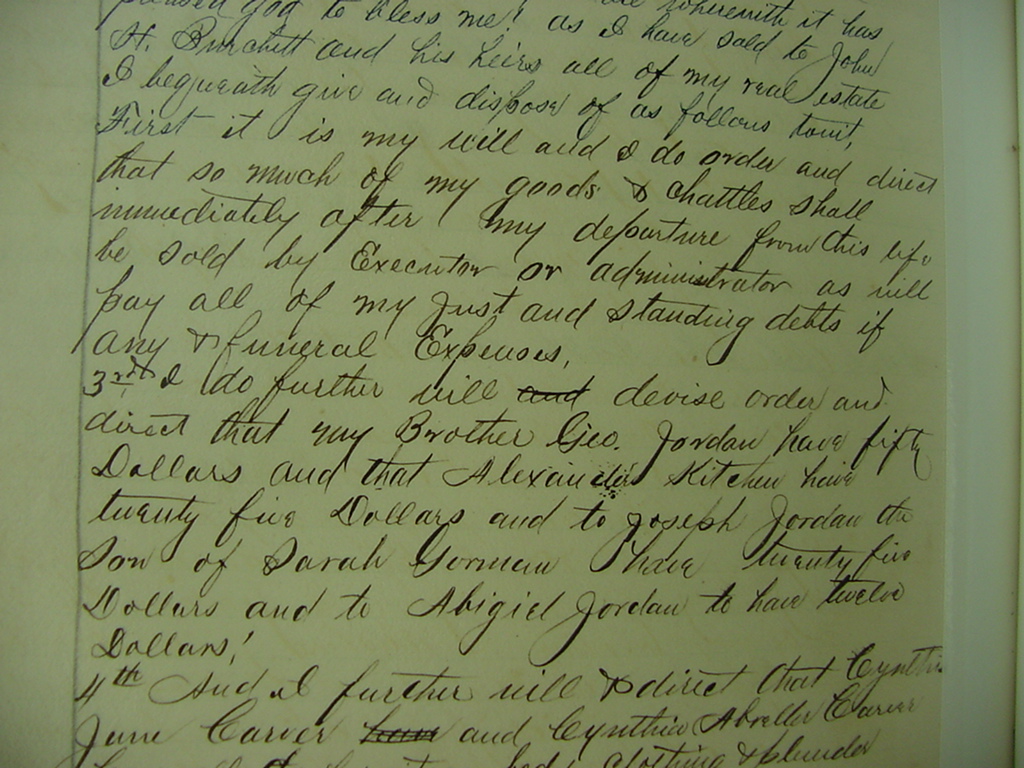 pleased God to bless me! as I have sold to John
H. Burchett and his heirs all of my real estate
I bequeath give and dispose of as follows towit,
First it is my will and I do order and direct
that so much of my goods & chattles shall
immediately after my departure from this life
be sold by Executor or administrator as will
pay all of my just and standing debts if
any & funeral Expenses,
3rd I do further will and devise order and
direct that my Brother Geo. Jordan have fifty
Dollars and that Alexander Kitchen have
twenty five Dollars and to Joseph Jordan the
Son of Sarah Gorman have twenty five
Dollars and to Abigiel Jordan to have twelve
Dollars!
4th And I further will & direct that Cynthia
Jane Carver have and Cynthia Abseller Carver
bed, clothing & plunder